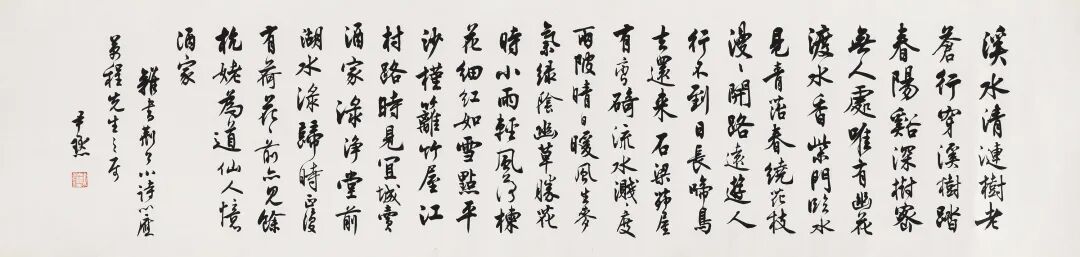 溪水清漣樹老
蒼行穿溪樹踏
春陽谿深樹密
無人處唯有幽花
渡水香柴門臨水
見青蒼春繞花枝
漫〻開路遠遊人
行不到日長啼鳥
去還来石梁茅屋
有彎碕流水濺〻度
兩陂晴日暖風生麥
氣綠陰幽草勝花
時小雨輕風落楝
花細紅如雪點平
沙槿籬竹屋江
村路時見宜城賣
酒家淥淨堂前
湖水淥歸時正復
有荷花花前亦見餘
杭姥為道仙人憶
酒家
雜書荊公小詩以應
程先生之屬
尹默